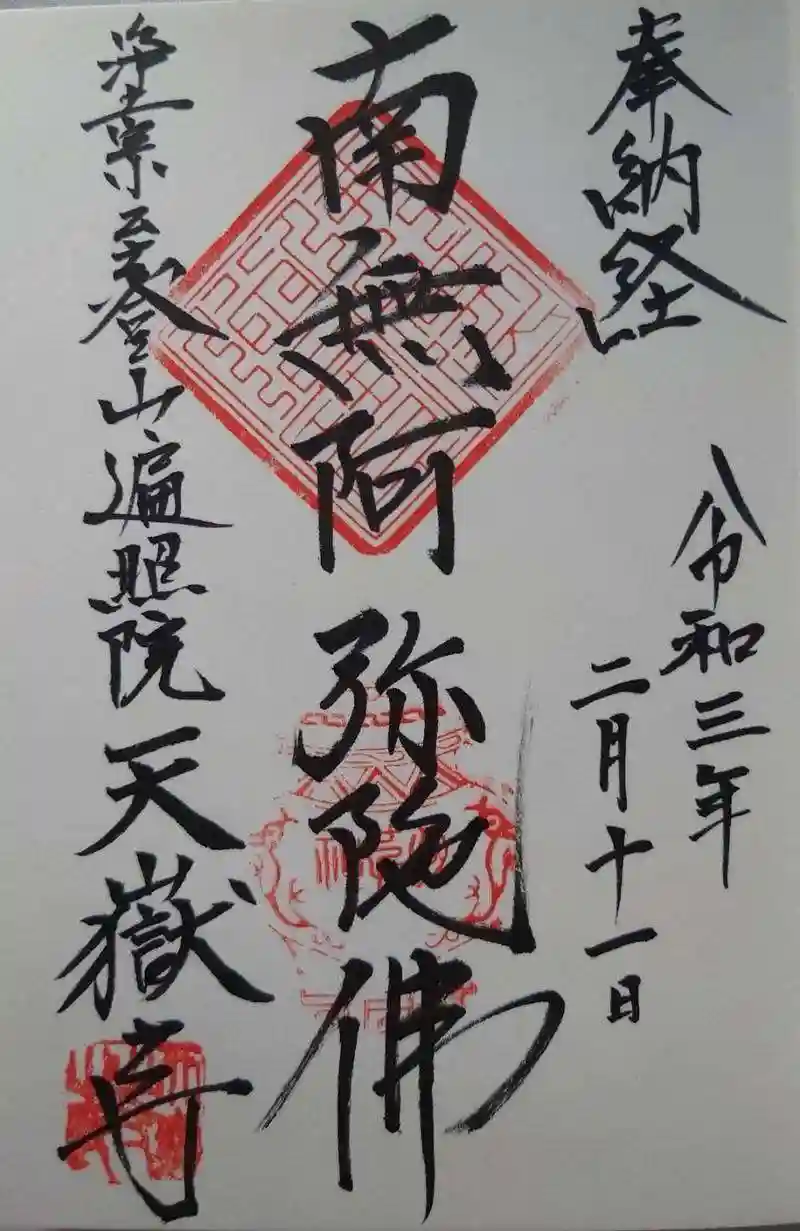 奉納経
令和三年
二月十一日
南無阿弥陀佛
浄土宗至登山遍照院天嶽寺